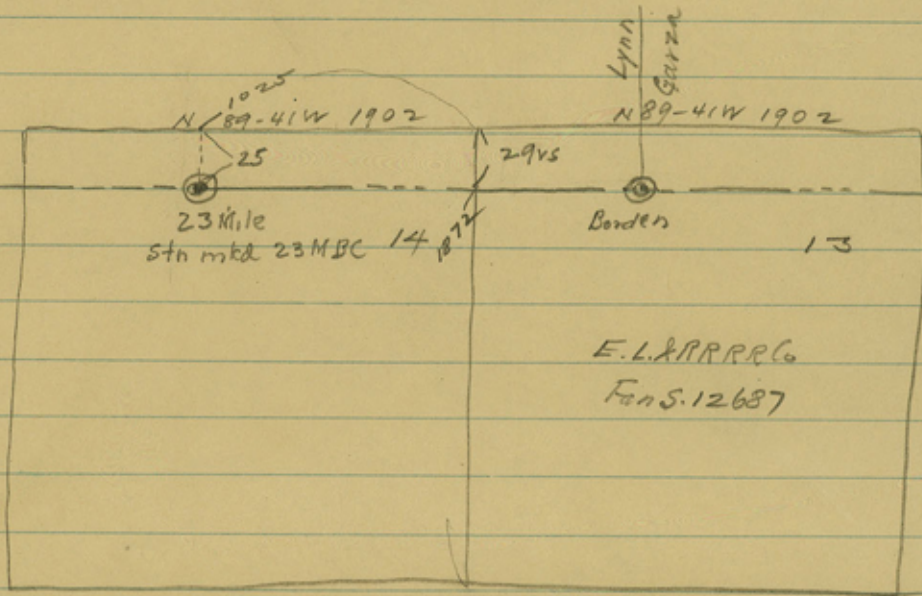 Lynn
Garza
1025
N 89-41W 1902
N 89-41W 1902
25
29vs
23 Mile
Stn mkd 23MBC
14
1872
Borden
13
E.L.&RRRRCo
S.12687